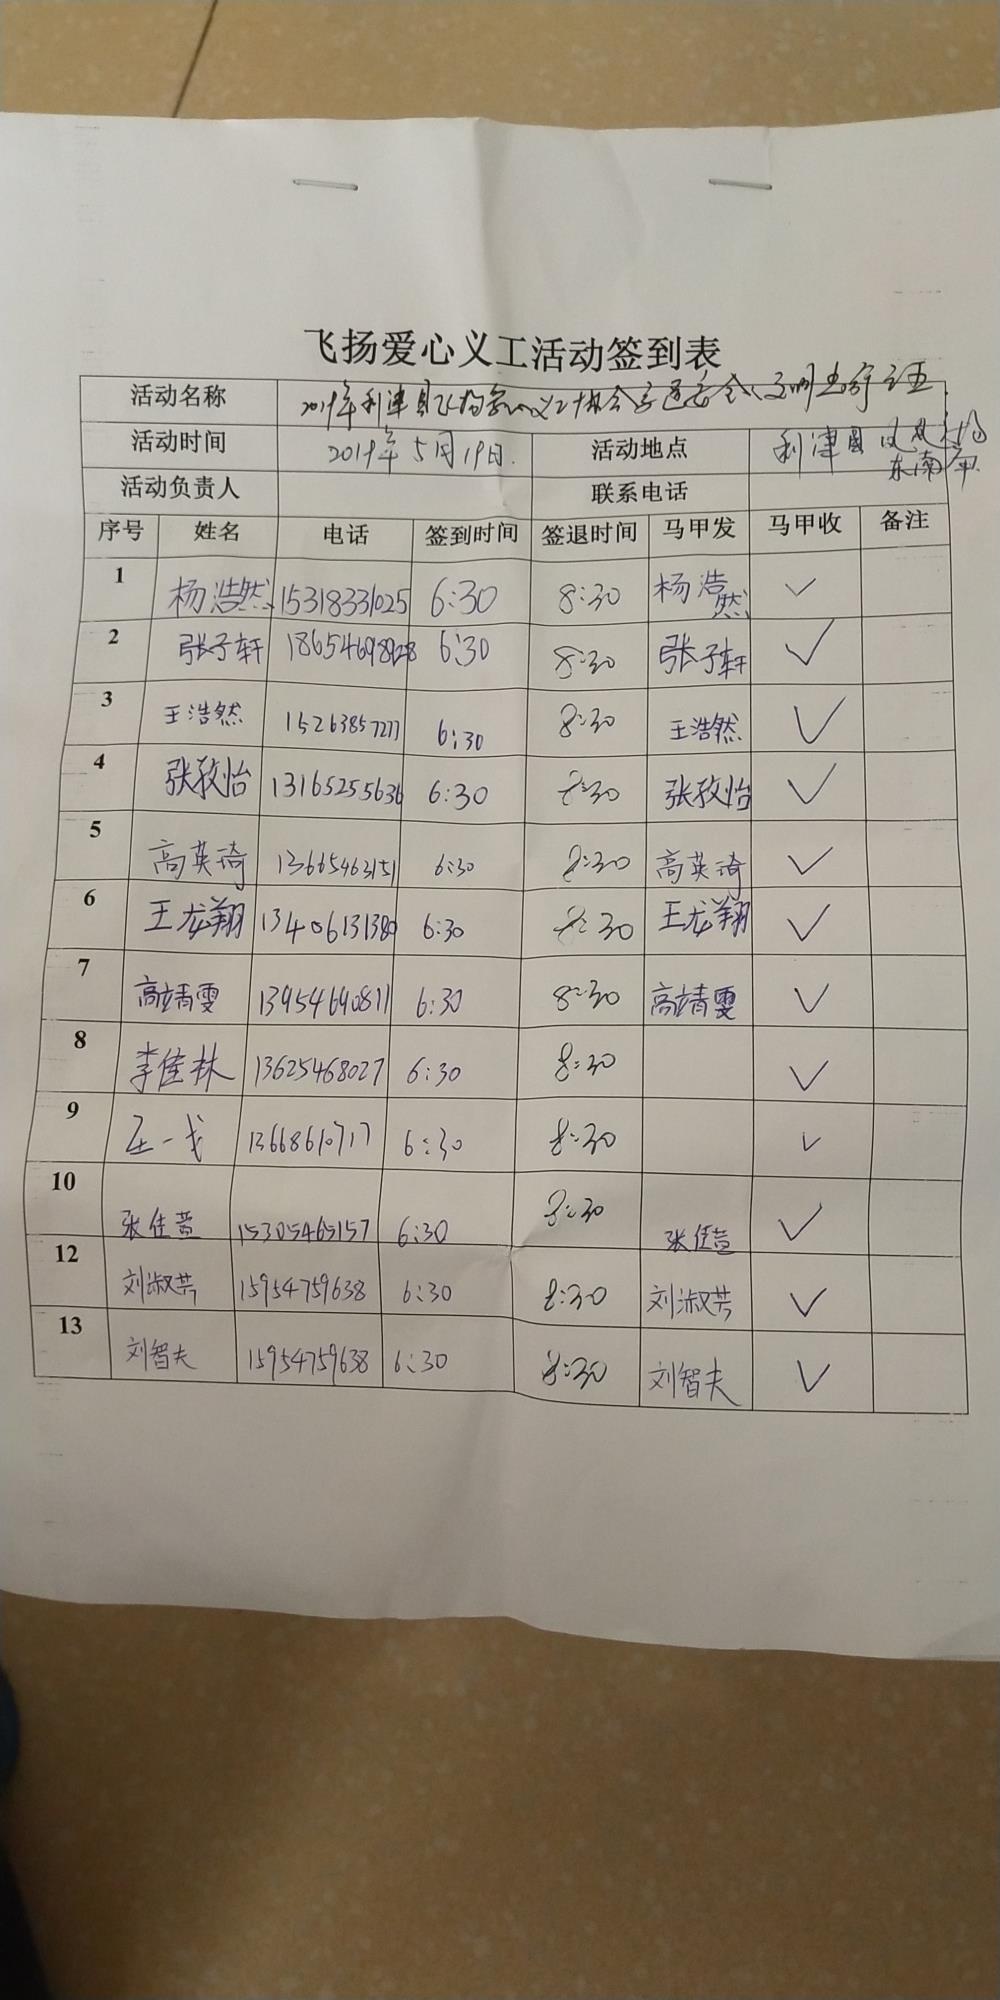 飞扬爱心义工活动签到表
活动名称 2019年利津县飞扬爱心义工协会交通安全、文明出行
活动时间 2019年5月19日 活动地点 利津县
东南角
活动负责人 联系电话
序号 姓名 电话 签到时间 签退时间 马甲发 马甲收 备注
1 杨浩然 15318331025 6:30 8:30 杨浩然 ✓
2 张子轩 18654698928 6:30 8:30 张子轩 ✓
3 王浩然 15263857277 6:30 8:30 王浩然 ✓
4 张孜怡 13165255636 6:30 8:30 张孜怡 ✓
5 高英琦 13665463151 6:30 8:30 高英琦 ✓
6 王龙翔 13406131380 6:30 8:30 王龙翔 ✓
7 高靖雯 13954690811 6:30 8:30 高靖雯 ✓
8 李佳林 13625468027 6:30 8:30 ✓
9 13668610717 6:30 8:30 ✓
10 张佳萱 15305465157 6:30 8:30 张佳萱 ✓
12 刘淑芸 15954759638 6:30 8:30 刘淑芸 ✓
13 刘智夫 15954759638 6:30 8:30 刘智夫 ✓